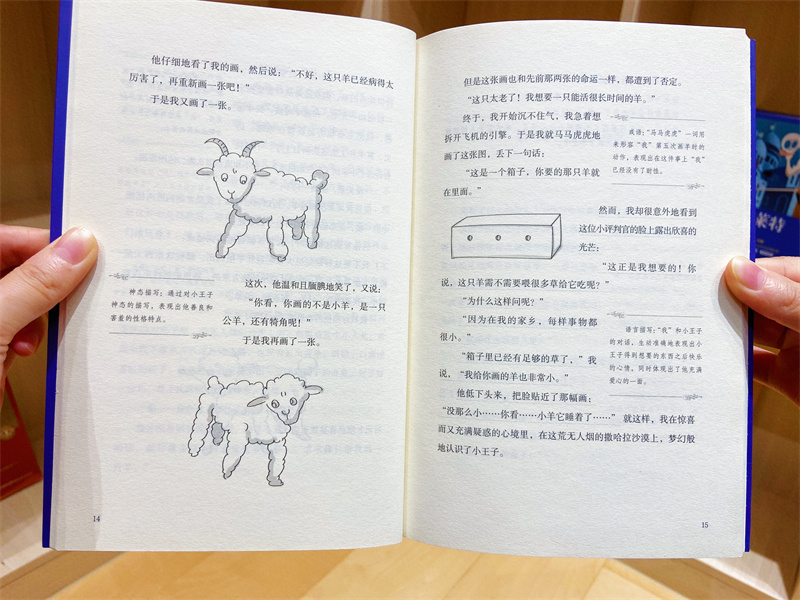 他仔细地看了我的画，然后说：“不好，这只羊已经病得太
厉害了，再重新画一张吧！”
于是我又画了一张。
这次，他温和且腼腆地笑了，又说：
“你看，你画的不是小羊，是一只
公羊，还有犄角呢！”
于是我再画了一张。
神态描写：通过对小王子
神态的描写，表现出他善良和
害羞的性格特点。
14
但是这张画也和先前那两张的命运一样，都遭到了否定。
“这只太老了！我想要一只能活很长时间的羊。”
终于，我开始沉不住气，我急着想
拆开飞机的引擎。于是我就马马虎虎地
画了这张图，丢下一句话：
“这是一个箱子，你要的那只羊就
在里面。”
成语：“马马虎虎”一词用
来形容“我”第五次画羊时的
动作，表现出在这件事上“我”
已经没有了耐性。
然而，我却很意外地看到
这位小评判官的脸上露出欣喜的
光芒：
“这正是我想要的！你
说，这只羊需不需要喂很多草给它吃呢？”
“为什么这样问呢？”
“因为在我的家乡，每样事物都
很小。”
“箱子里已经有足够的草了，”我
说，“我给你画的羊也非常小。”
语言描写：“我”和小王子
的对话，生动准确地表现出小
王子得到想要的东西之后快乐
的心情。同时体现出了他充满
爱心的一面。
他低下头来，把脸贴近了那幅画：
“没那么小……你看……小羊它睡着了……” 就这样，我在惊喜
而又充满疑惑的心境里，在这荒无人烟的撒哈拉沙漠上，梦幻般
地认识了小王子。
15
莱特